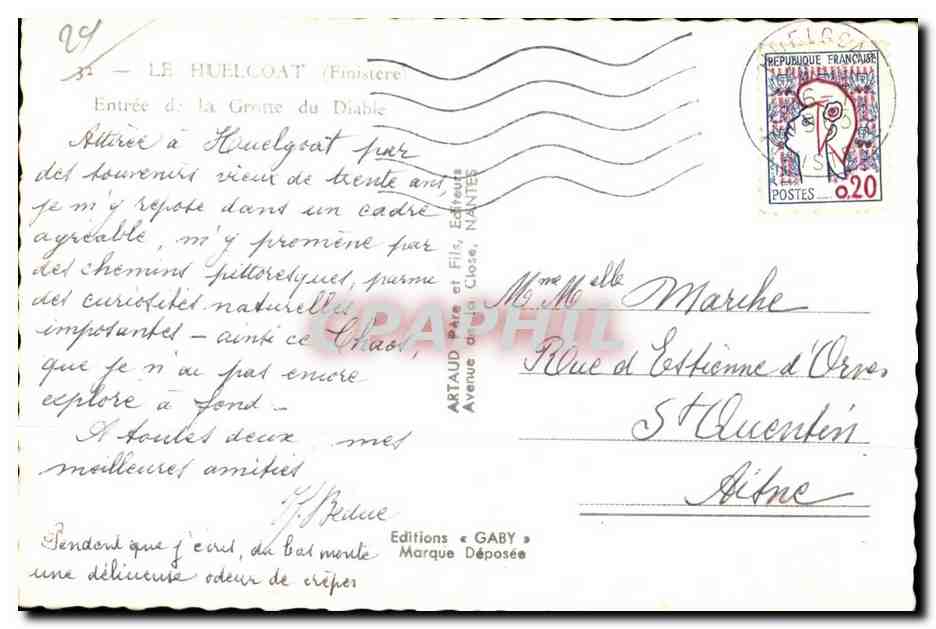 29
32 - LE HUELGOAT (Finistère)
Entrée de la Grotte du Diable
Attirée à Huelgoat par
des souvenirs vieux de trente ans,
je m'y repose dans un cadre
agréable, m'y promène par
des chemins pittoresques, parmi
des curiosités naturelles
imposantes - ainsi ce Chaos,
que je n'ai pas encore
exploré à fond -
A toutes deux, mes
meilleures amitiés
Beduc
Pendant que j'écris, du bas monte
une délicieuse odeur de crêpes
ARTAUD Père et Fils, Editeurs
Avenue de la Close, NANTES
Editions « GABY »
Marque Déposée
CPAPHIL
REPUBLIQUE FRANÇAISE
POSTES 0,20
Mme Melle Marche
Rue d'Estienne d'Orves
St Quentin
Aisne